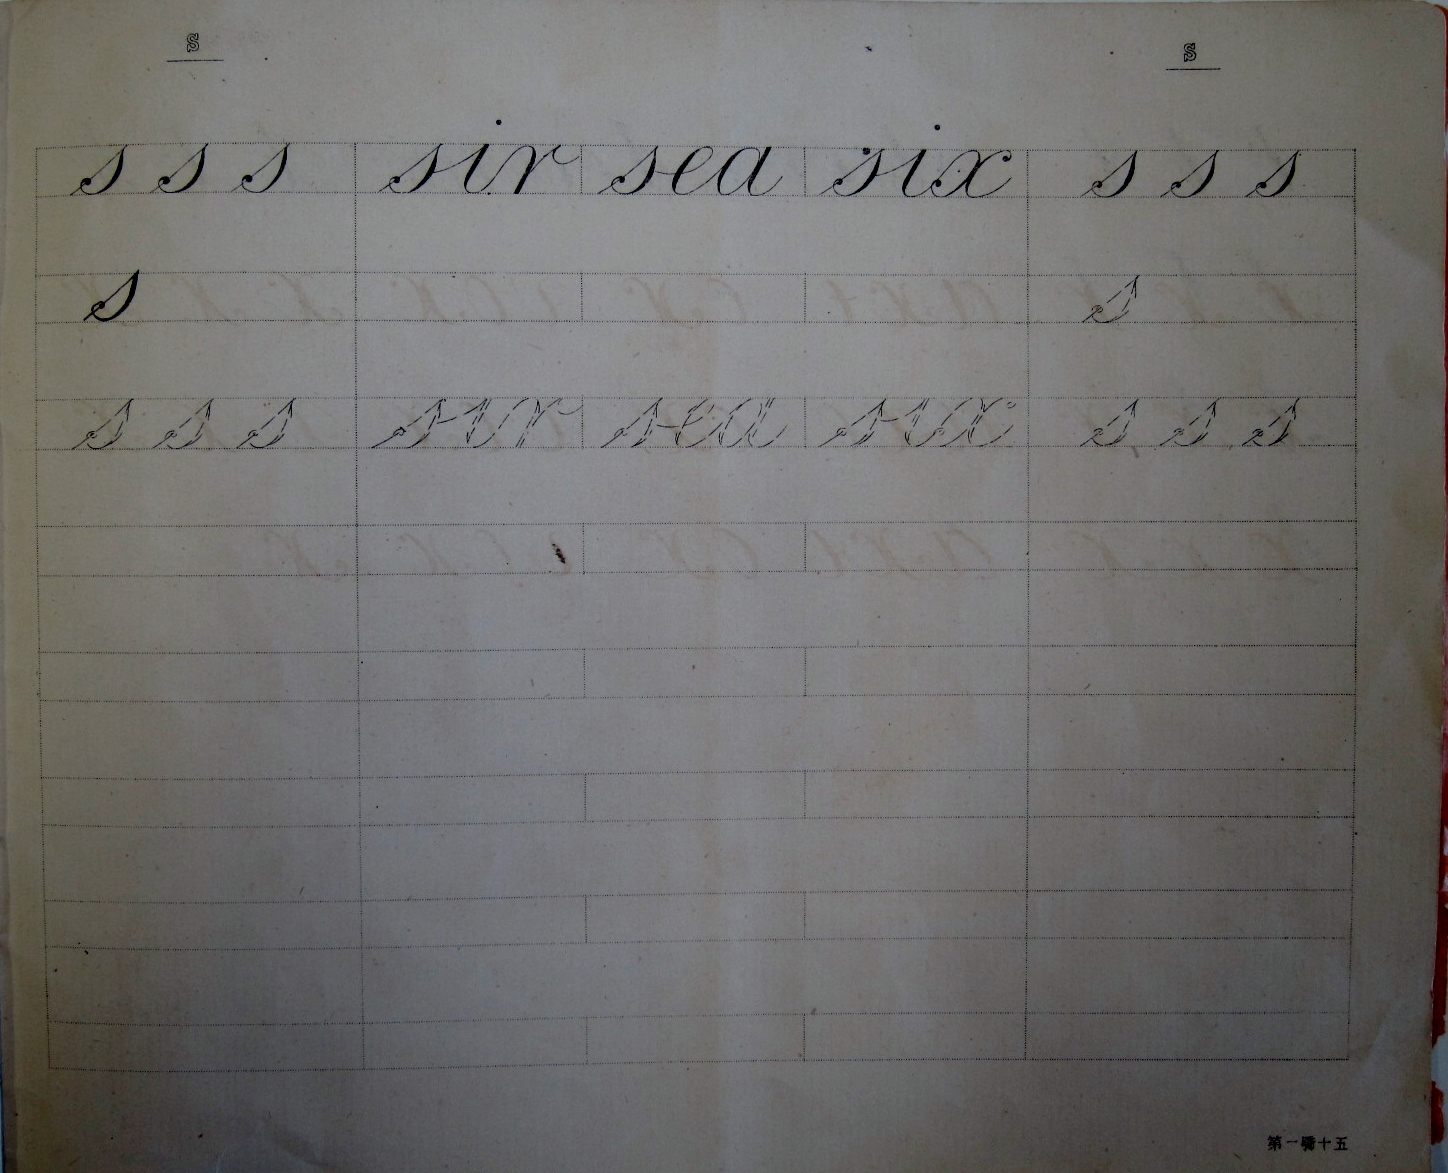 s s
s s s sir sea six s s s
s s
s s s sir sea six s s s
第一號十五